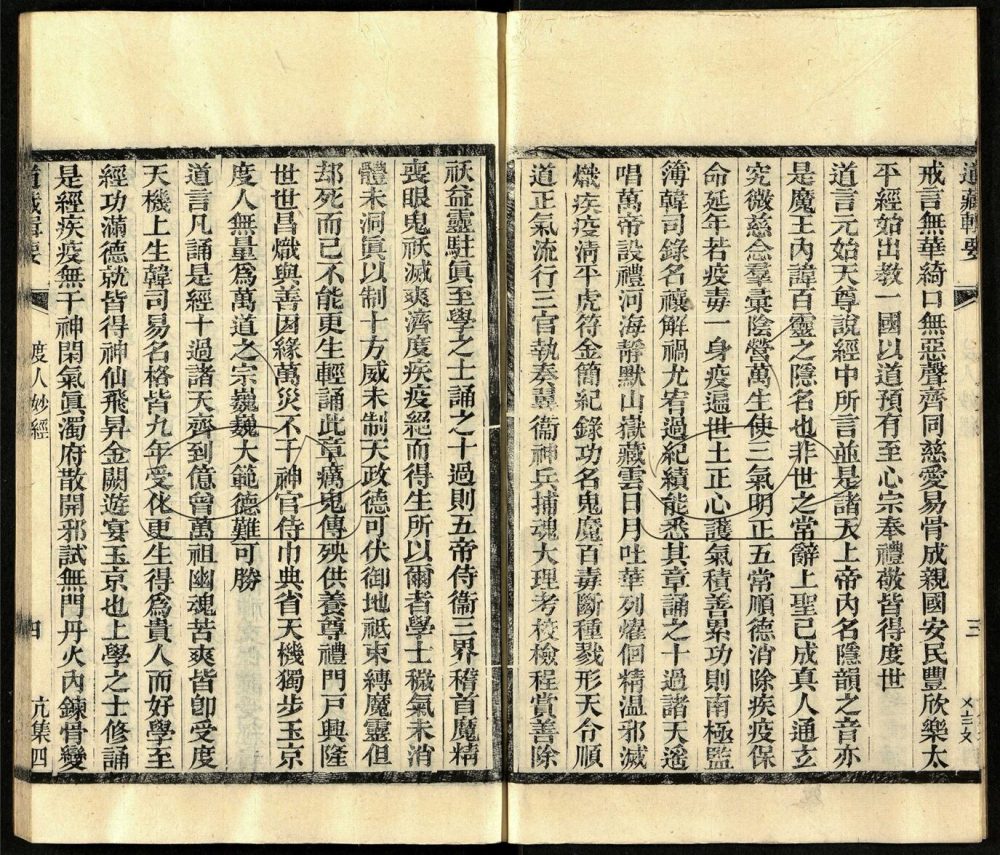 道藏輯要
三
戒言無華綺口無惡聲齊同慈愛易骨成親國安民豐欣樂太
平經始出教一國以道預有至心宗奉禮敬皆得度世
道言元始天尊說經中所言並是諸天上帝內名隱韻之音亦
是魔王內諱百靈之隱名也非世之常辭上聖已成真人通玄
究微慈念羣彙陰營萬生使三氣明正五常順德消除疾疫保
命延年若疫毒一身疫遍世土正心護氣積善累功則南極監
簿韓司錄名禳解禍尤宥過紀績能悉其章誦之十過諸天遙
唱萬帝設禮河海靜默山嶽藏雲日月吐華列燿佪精温邪滅
熾疾疫淸平虎符金簡紀錄功名鬼魔百毒斷種戮形天令順
道正氣流行三官執奏翼衞神兵捕魂大理考校檢程賞善除
祅益靈駐眞至學之士誦之十過則五帝侍衞三界稽首魔精
喪眼鬼祅滅爽濟度疾疫絕而得生所以爾者學士穢氣未消
體未洞眞以制十方威未制天政德可伏御地祇束縛魔靈但
却死而已不能更生輕誦此章癘鬼傳殃供養尊禮門戸興隆
世世昌熾與善因緣萬災不干神官侍巾典省天機獨步玉京
度人無量爲萬道之宗巍巍大範德難可勝
道言凡誦是經十過諸天齊到億曾萬祖幽魂苦爽皆卽受度
天機上生韓司易名格皆九年受化更生得爲貴人而好學至
經功滿德就皆得神仙飛昇金闕遊宴玉京也上學之士修誦
是經疾疫無干神閑氣眞濁府散開邪試無門丹火內鍊骨變
道藏輯要
度人妙經
四
亢集四